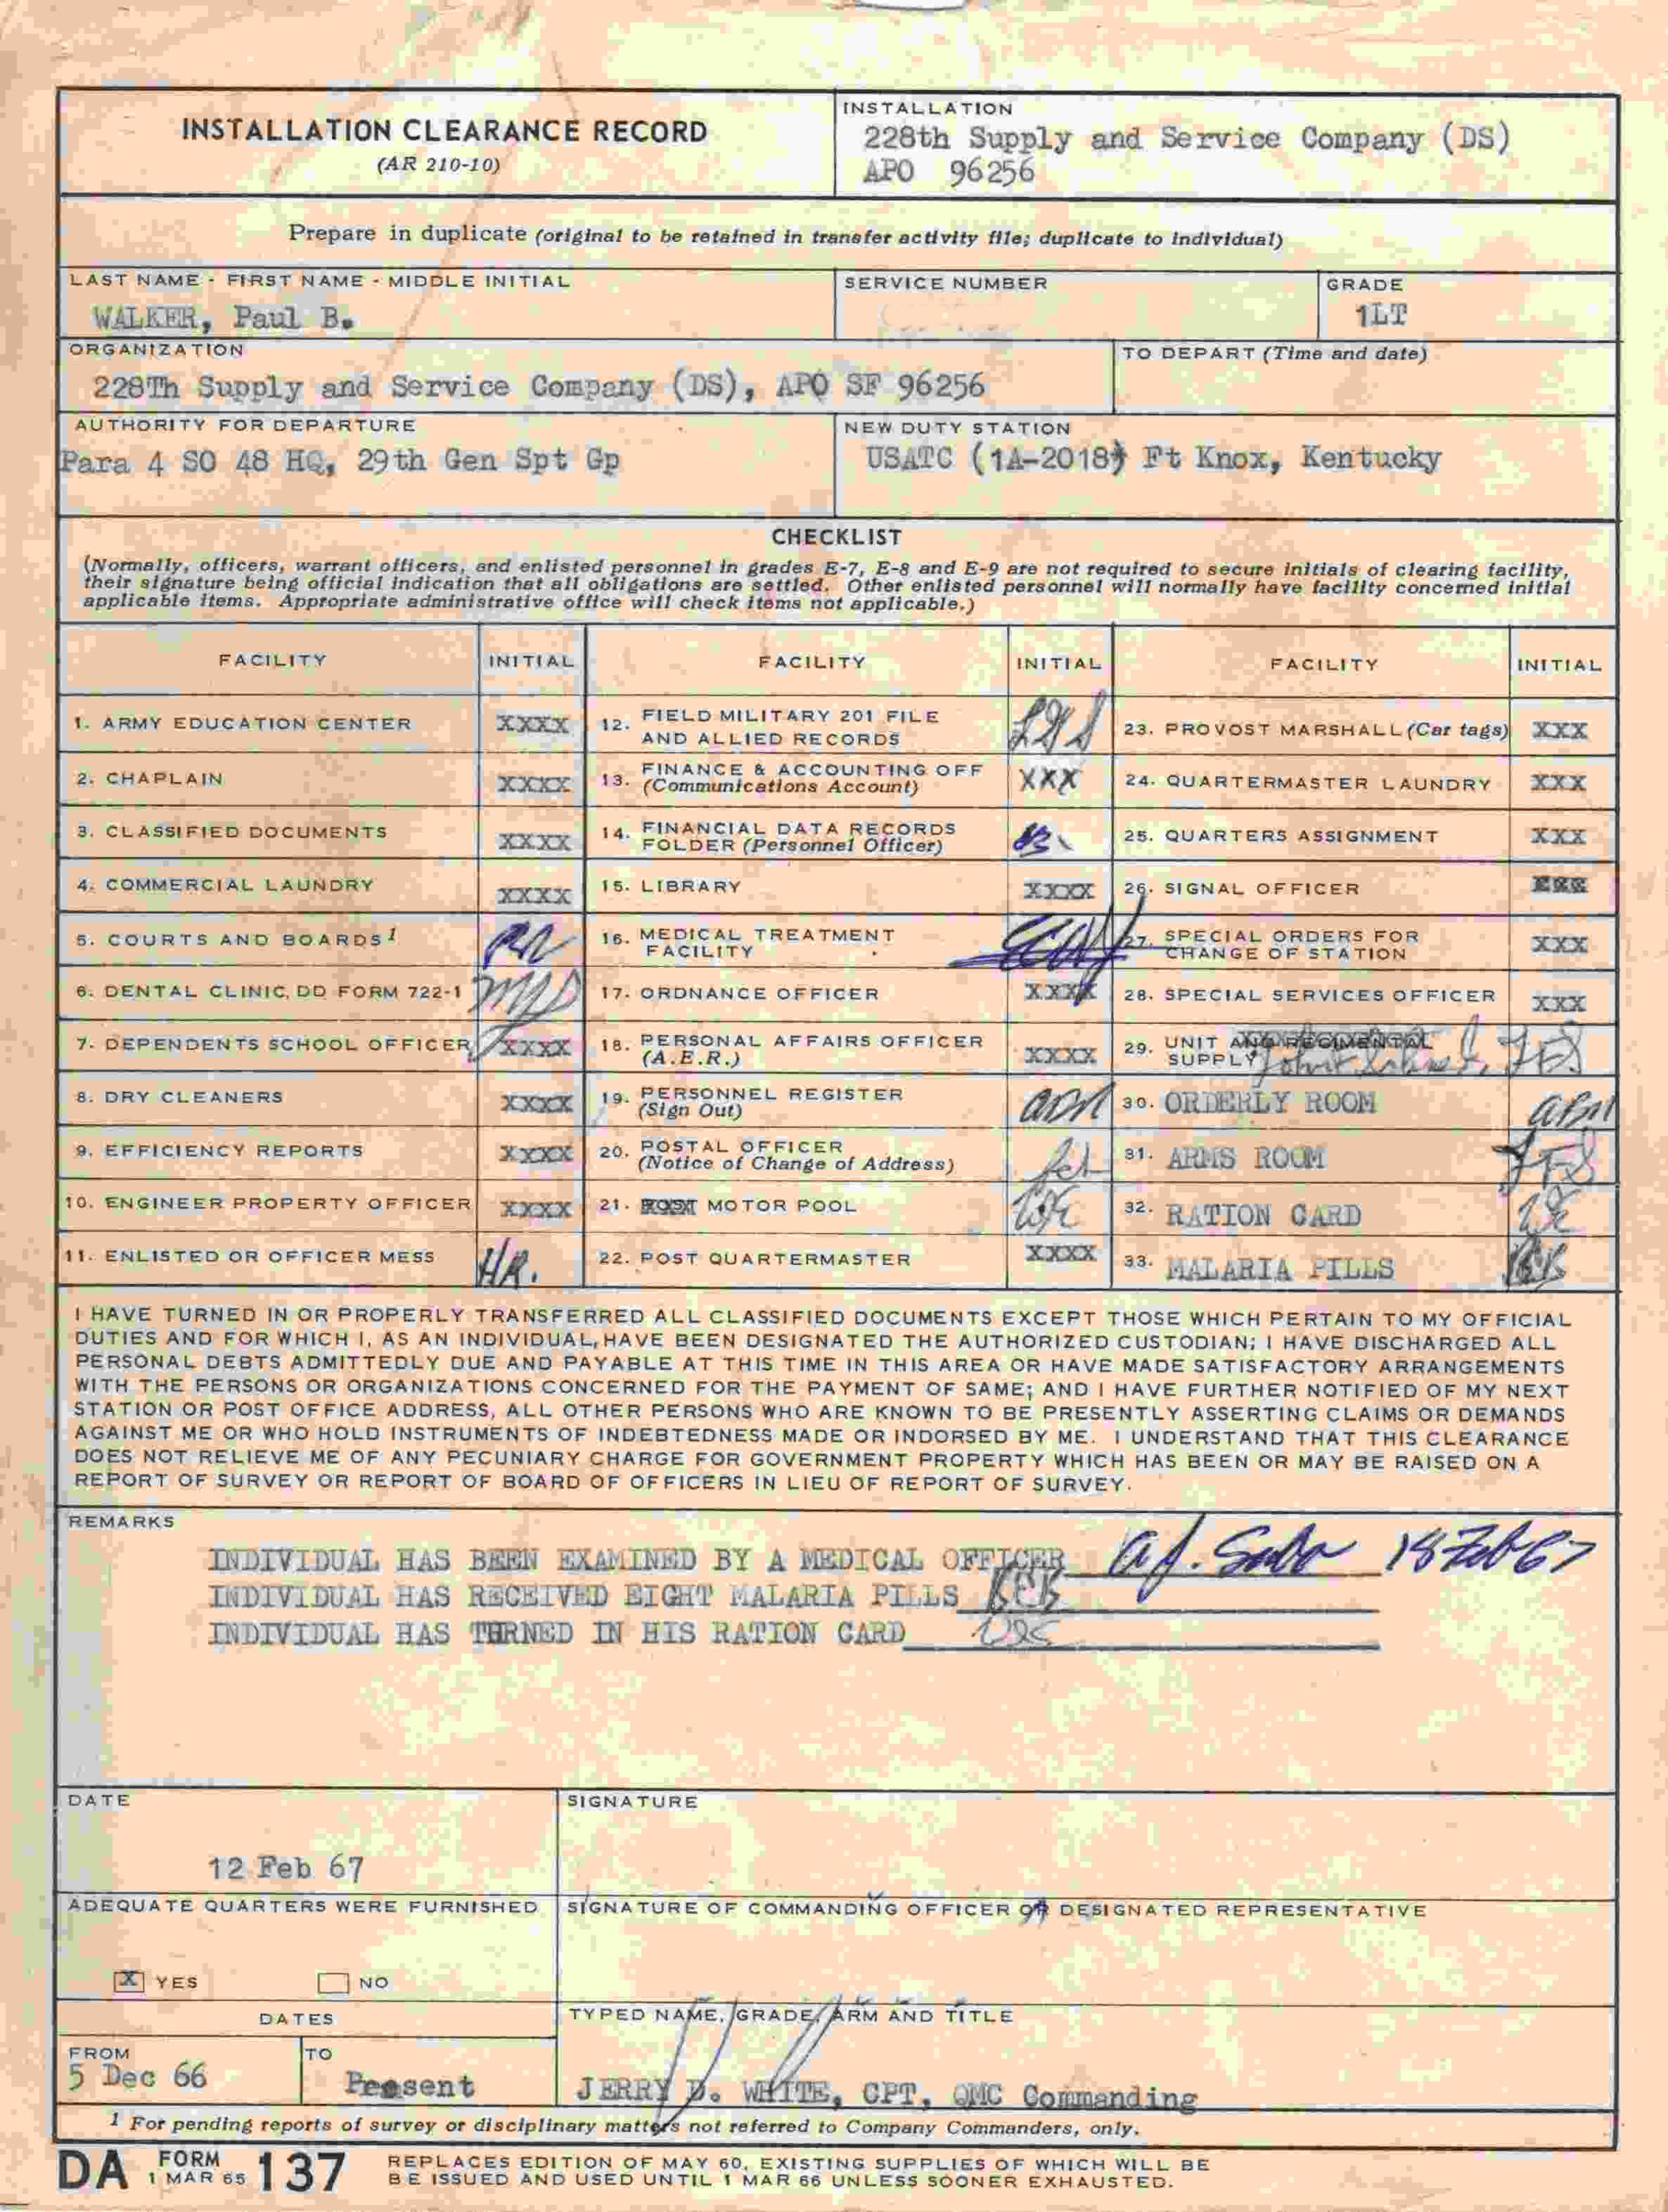 INSTALLATION CLEARANCE RECORD
(AR 210-10)
INSTALLATION
228th Supply and Service Company (DS)
APO 96256
Prepare in duplicate (original to be retained in transfer activity file; duplicate to individual)
LAST NAME - FIRST NAME - MIDDLE INITIAL
WALKER, Paul B.
SERVICE NUMBER
GRADE
1LT
ORGANIZATION
228Th Supply and Service Company (DS), APO SF 96256
TO DEPART (Time and date)
AUTHORITY FOR DEPARTURE
Para 4 SO 48 HQ, 29th Gen Spt Gp
NEW DUTY STATION
USATC (1A-2018) Ft Knox, Kentucky
CHECKLIST
(Normally, officers, warrant officers, and enlisted personnel in grades E-7, E-8 and E-9 are not required to secure initials of clearing facility,
their signature being official indication that all obligations are settled. Other enlisted personnel will normally have facility concerned initial
applicable items. Appropriate administrative office will check items not applicable.)
FACILITY INITIAL FACILITY INITIAL FACILITY INITIAL
1. ARMY EDUCATION CENTER XXXX
2. CHAPLAIN XXXX
3. CLASSIFIED DOCUMENTS XXXX
4. COMMERCIAL LAUNDRY XXXX
5. COURTS AND BOARDS 1
6. DENTAL CLINIC, DD FORM 722-1
7. DEPENDENTS SCHOOL OFFICER XXXX
8. DRY CLEANERS XXXX
9. EFFICIENCY REPORTS XXXX
10. ENGINEER PROPERTY OFFICER XXXX
11. ENLISTED OR OFFICER MESS HR.
12. FIELD MILITARY 201 FILE
AND ALLIED RECORDS
13. FINANCE & ACCOUNTING OFF XXX
(Communications Account)
14. FINANCIAL DATA RECORDS
FOLDER (Personnel Officer)
15. LIBRARY XXXX
16. MEDICAL TREATMENT
FACILITY
17. ORDNANCE OFFICER XXXX
18. PERSONAL AFFAIRS OFFICER XXXX
(A.E.R.)
19. PERSONNEL REGISTER
(Sign Out)
20. POSTAL OFFICER
(Notice of Change of Address)
21. POST MOTOR POOL
22. POST QUARTERMASTER XXXX
23. PROVOST MARSHALL (Car tags) XXX
24. QUARTERMASTER LAUNDRY XXX
25. QUARTERS ASSIGNMENT XXX
26. SIGNAL OFFICER XXX
27. SPECIAL ORDERS FOR XXX
CHANGE OF STATION
28. SPECIAL SERVICES OFFICER XXX
29. UNIT AND REGIMENTAL
SUPPLY JFS
30. ORDERLY ROOM
31. ARMS ROOM JFS
32. RATION CARD
33. MALARIA PILLS
I HAVE TURNED IN OR PROPERLY TRANSFERRED ALL CLASSIFIED DOCUMENTS EXCEPT THOSE WHICH PERTAIN TO MY OFFICIAL
DUTIES AND FOR WHICH I, AS AN INDIVIDUAL, HAVE BEEN DESIGNATED THE AUTHORIZED CUSTODIAN; I HAVE DISCHARGED ALL
PERSONAL DEBTS ADMITTEDLY DUE AND PAYABLE AT THIS TIME IN THIS AREA OR HAVE MADE SATISFACTORY ARRANGEMENTS
WITH THE PERSONS OR ORGANIZATIONS CONCERNED FOR THE PAYMENT OF SAME; AND I HAVE FURTHER NOTIFIED OF MY NEXT
STATION OR POST OFFICE ADDRESS, ALL OTHER PERSONS WHO ARE KNOWN TO BE PRESENTLY ASSERTING CLAIMS OR DEMANDS
AGAINST ME OR WHO HOLD INSTRUMENTS OF INDEBTEDNESS MADE OR INDORSED BY ME. I UNDERSTAND THAT THIS CLEARANCE
DOES NOT RELIEVE ME OF ANY PECUNIARY CHARGE FOR GOVERNMENT PROPERTY WHICH HAS BEEN OR MAY BE RAISED ON A
REPORT OF SURVEY OR REPORT OF BOARD OF OFFICERS IN LIEU OF REPORT OF SURVEY.
REMARKS
INDIVIDUAL HAS BEEN EXAMINED BY A MEDICAL OFFICER
INDIVIDUAL HAS RECEIVED EIGHT MALARIA PILLS
INDIVIDUAL HAS TURNED IN HIS RATION CARD
DATE
12 Feb 67
SIGNATURE
ADEQUATE QUARTERS WERE FURNISHED
X YES NO
SIGNATURE OF COMMANDING OFFICER OR DESIGNATED REPRESENTATIVE
DATES
FROM
5 Dec 66
TO
Present
TYPED NAME, GRADE, ARM AND TITLE
JERRY D. WHITE, CPT, QMC Commanding
1 For pending reports of survey or disciplinary matters not referred to Company Commanders, only.
DA FORM 137
1 MAR 65
REPLACES EDITION OF MAY 60, EXISTING SUPPLIES OF WHICH WILL BE
BE ISSUED AND USED UNTIL 1 MAR 66 UNLESS SOONER EXHAUSTED.